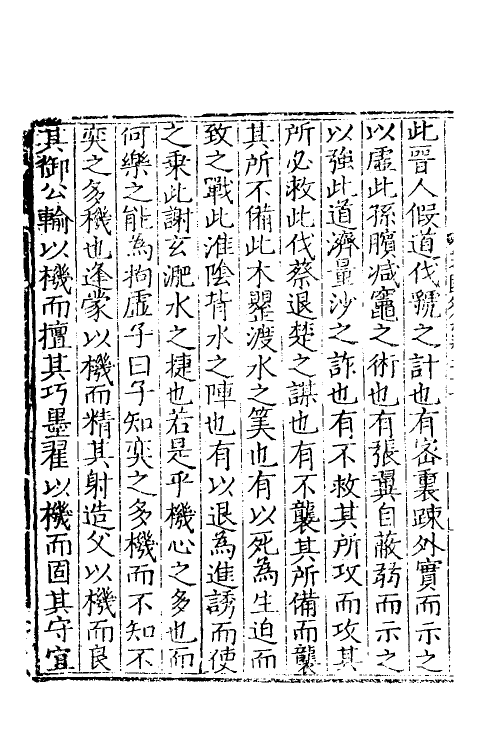 此晉人假道伐虢之計也有密裏踈外實而示之
以虛此孫臏减竈之術也有張翼自蔽弱而示之
以強此道濟量沙之詐也有不救其所攻而攻其
所必救此伐蔡退楚之謀也有不襲其所備而襲
其所不備此木罌渡水之筭也有以死為生迫而
致之戰此淮陰背水之陣也有以退為進誘而使
之乗此謝玄淝水之捷也若是乎機心之多也而
何樂之能為拘虛子曰子知奕之多機而不知不
奕之多機也逢蒙以機而精其射造父以機而良
其御公輸以機而擅其巧墨翟以機而固其守宜